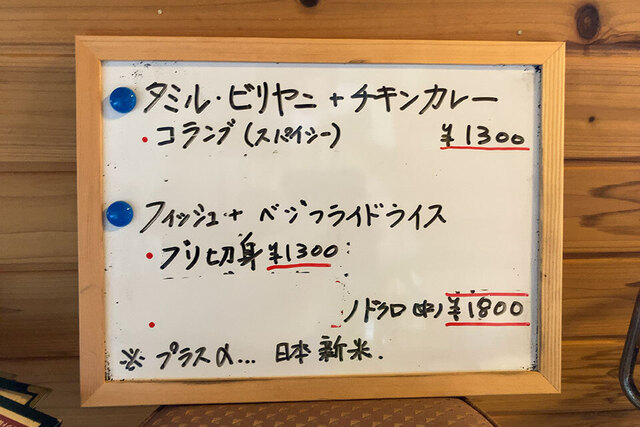 タミル・ビリヤニ + チキンカレー
・コランブ(スパイシー) ¥1300
フィッシュ + ベジフライドライス
・ブリ切身 ¥1300
・ノドクロ(中) ¥1800
※ プラスα... 日本新米.